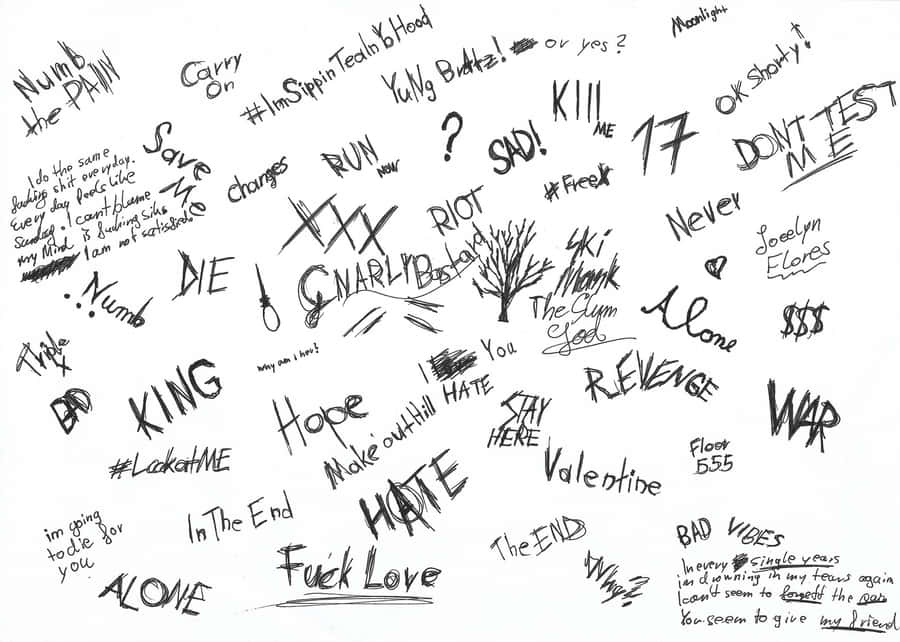 Moonlight
Numb
the PAIN
Carry
On
#ImSippinTeaInYbHood
YuNg Bratz! or yes?
OK Shorty!
KIll
ME
17
DONT TEST
ME
?
SAD!
RUN
NOW
Save
Me
changes
I do the same
fucking shit everyday.
Every day feels like
Sunday. I can't blame
my Mind is fucking
I am not
XXX
RIOT
#FreeX
Never
Jocelyn
Flores
DIE
GNARLY Bastard
Ski
Mask
The Slum
God
Numb
Alone
$$$
Triple
X
why am i her?
I HATE You
REVENGE
BAD
KING
Hope
STAY
HERE
WAR
Make out Hill
#LookatME
Floor
555
Valentine
HATE
In The End
The END
im going
to die for
you
ALONE
Fuck Love
Why?
BAD VIBES
In every single years
im drowning in my tears again
I cant seem to forgett the pain
You seem to give my friend